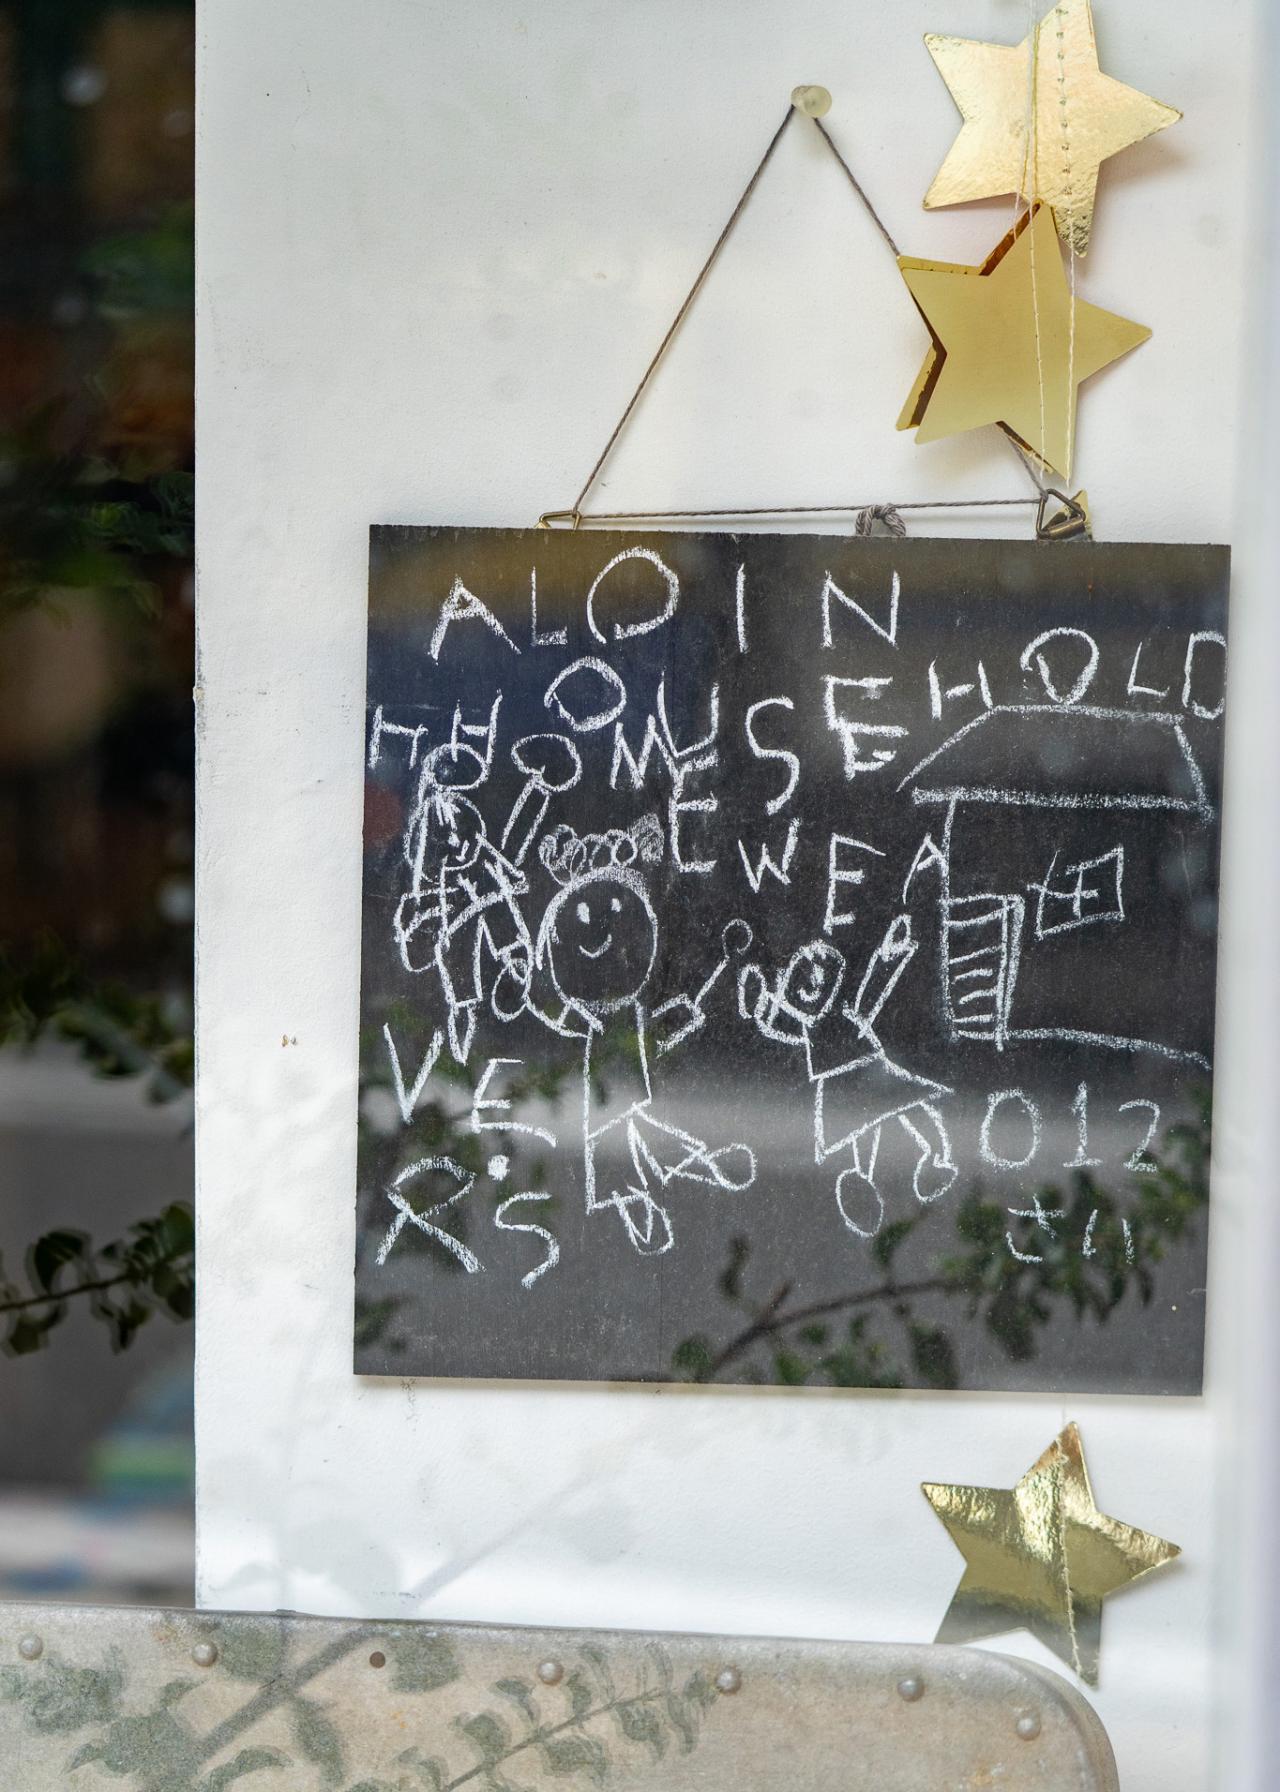 ALOIN
HOUSEHOLD
HOME WEA
VE
R'S
012
さい